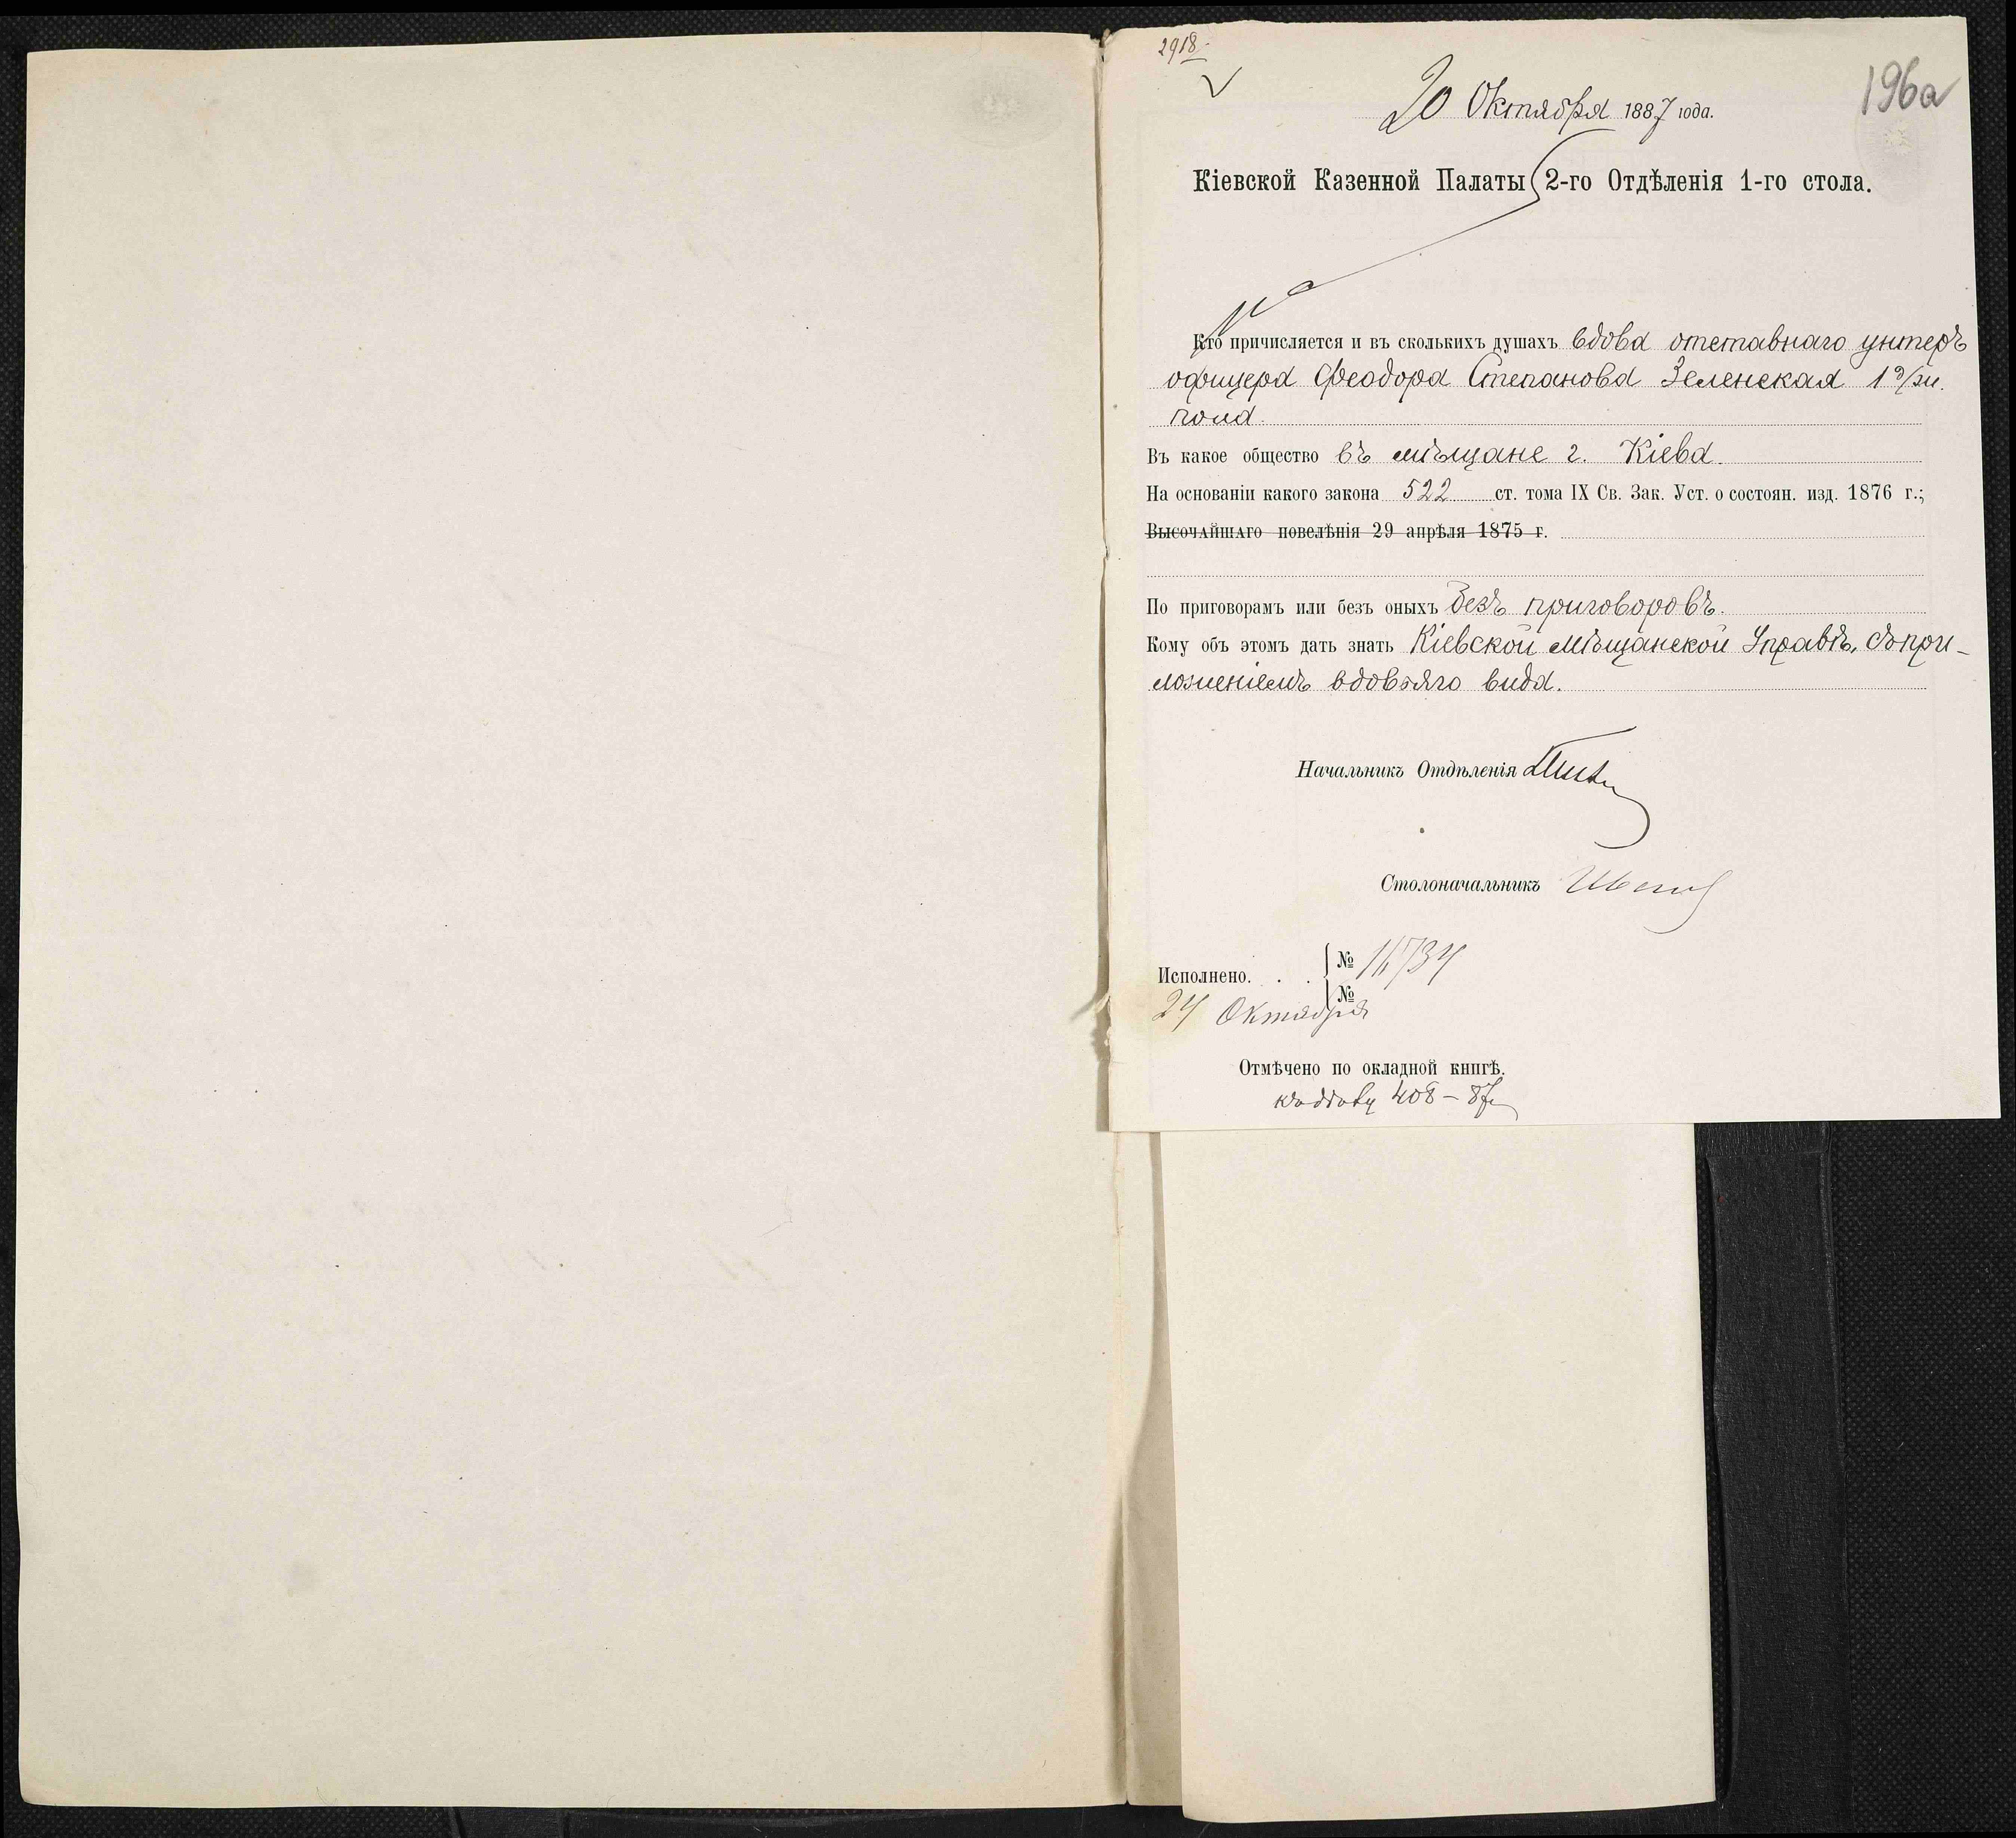 2918.
196а
20 Октября 1887 года.
Кіевской Казенной Палаты 2-го Отдѣленія 1-го стола.
Кто причисляется и въ сколькихъ душахъ вдова отставнаго унтеръ
офицера Феодора Степанова Зеленская 1 д/ж.
пола.
Въ какое общество въ мѣщане г. Кіева.
На основаніи какого закона 522 ст. тома IX Св. Зак. Уст. о состоян. изд. 1876 г.;
Высочайшаго повелѣнія 29 апрѣля 1875 г.
По приговорамъ или безъ оныхъ безъ приговоровъ.
Кому объ этомъ дать знать Кіевской Мѣщанской Управѣ, съ при-
ложеніемъ вдовьяго вида.
Начальникъ Отдѣленія
Столоначальникъ
Исполнено. . . № 11734
№
24 Октября
Отмѣчено по окладной книгѣ.
408 – 87